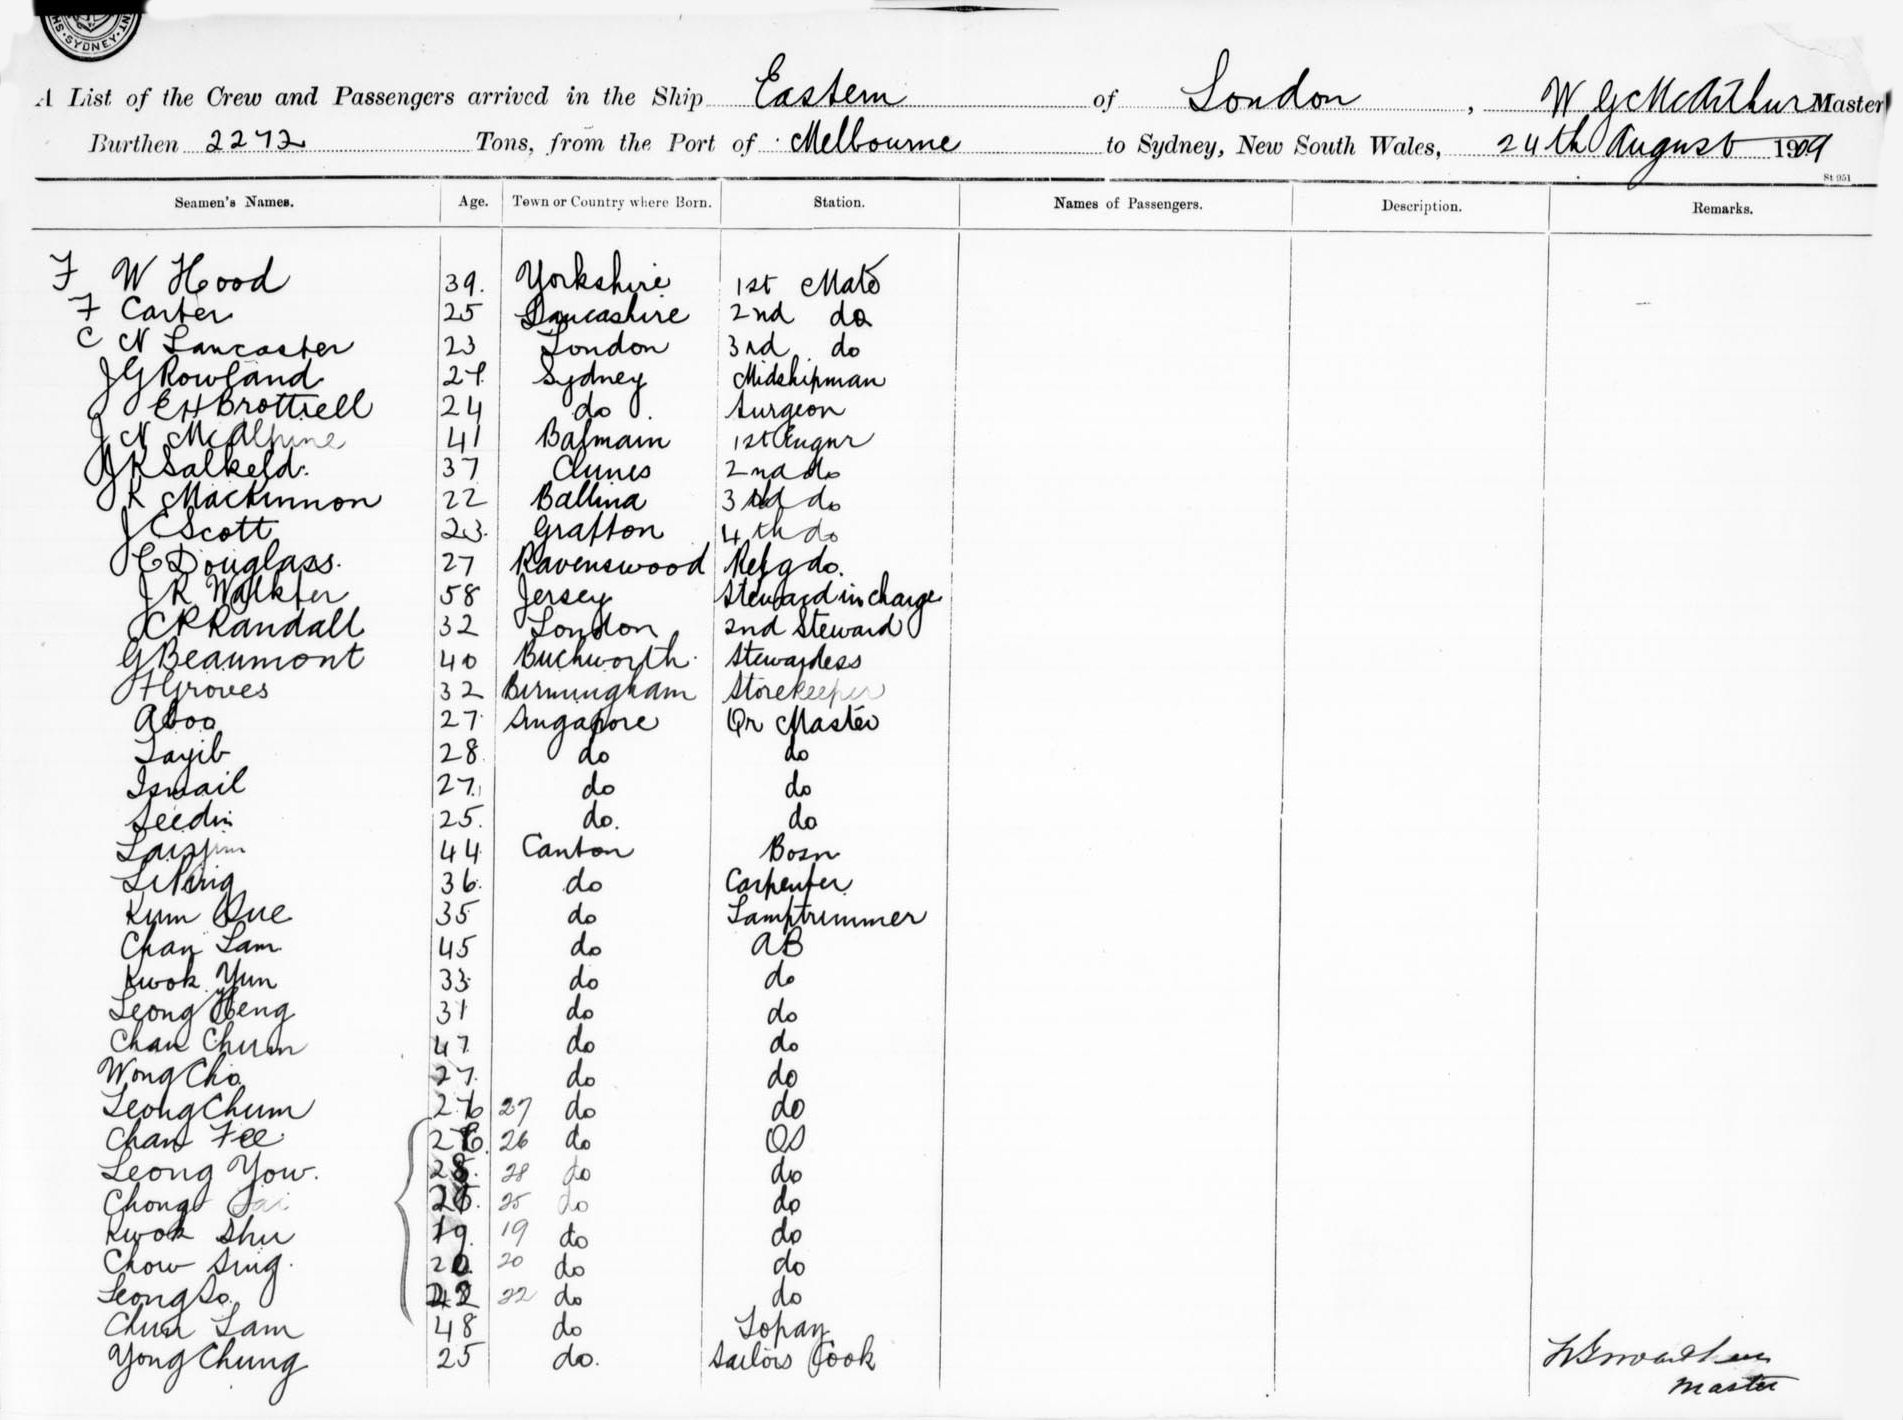 SYDNEY
A List of the Crew and Passengers arrived in the Ship Eastern of London, W G McArthur Master
Burthen 2272 Tons, from the Port of Melbourne to Sydney, New South Wales, 24th August 1909
St 951
Seamen's Names. Age. Town or Country where Born. Station. Names of Passengers. Description. Remarks.
F W Hood 39. Yorkshire 1st Mate
F Carter 25 Lancashire 2nd do
C N Lancaster 23 London 3rd do
J G Rowland 21. Sydney Midshipman
E H Brottrell 24 do Surgeon
J N McAlpine 41 Balmain 1st Engnr
J R Salkeld. 37 Clunes 2nd do
R MacKinnon 22 Ballina 3rd do
J C Scott 23. Grafton 4th do
C Douglass. 27 Ravenswood Refg do.
J R Walkter 58 Jersey Steward in charge
C R Randall 32 London 2nd Steward
G Beaumont 40 Buckworth Stewardess
F Groves 32 Birmingham Storekeeper
Aboo 27 Singapore Qr Master
Tayib 28. do do
Ismail 27. do do
Seedin 25. do. do
44 Canton Bosn
36. do Carpenter
Kum Que 35 do Lamptrimmer
Chan Lam 45 do AB
Kwok Yun 33 do do
Leong Heng 31 do do
Chan Chum 47 do do
Wong Cho 27. do do
Leong Chum 27 do do
Chan Fee 26 do OS
Leong Yow. 28. 28 do do
Chong 25 do do
Kwok Shu 19. 19 do do
Chow Sing. 20. 20 do do
Leong So. 22 22 do do
Chun Lam 48 do Topay
Yong Chung 25 do. Sailors Cook
Master